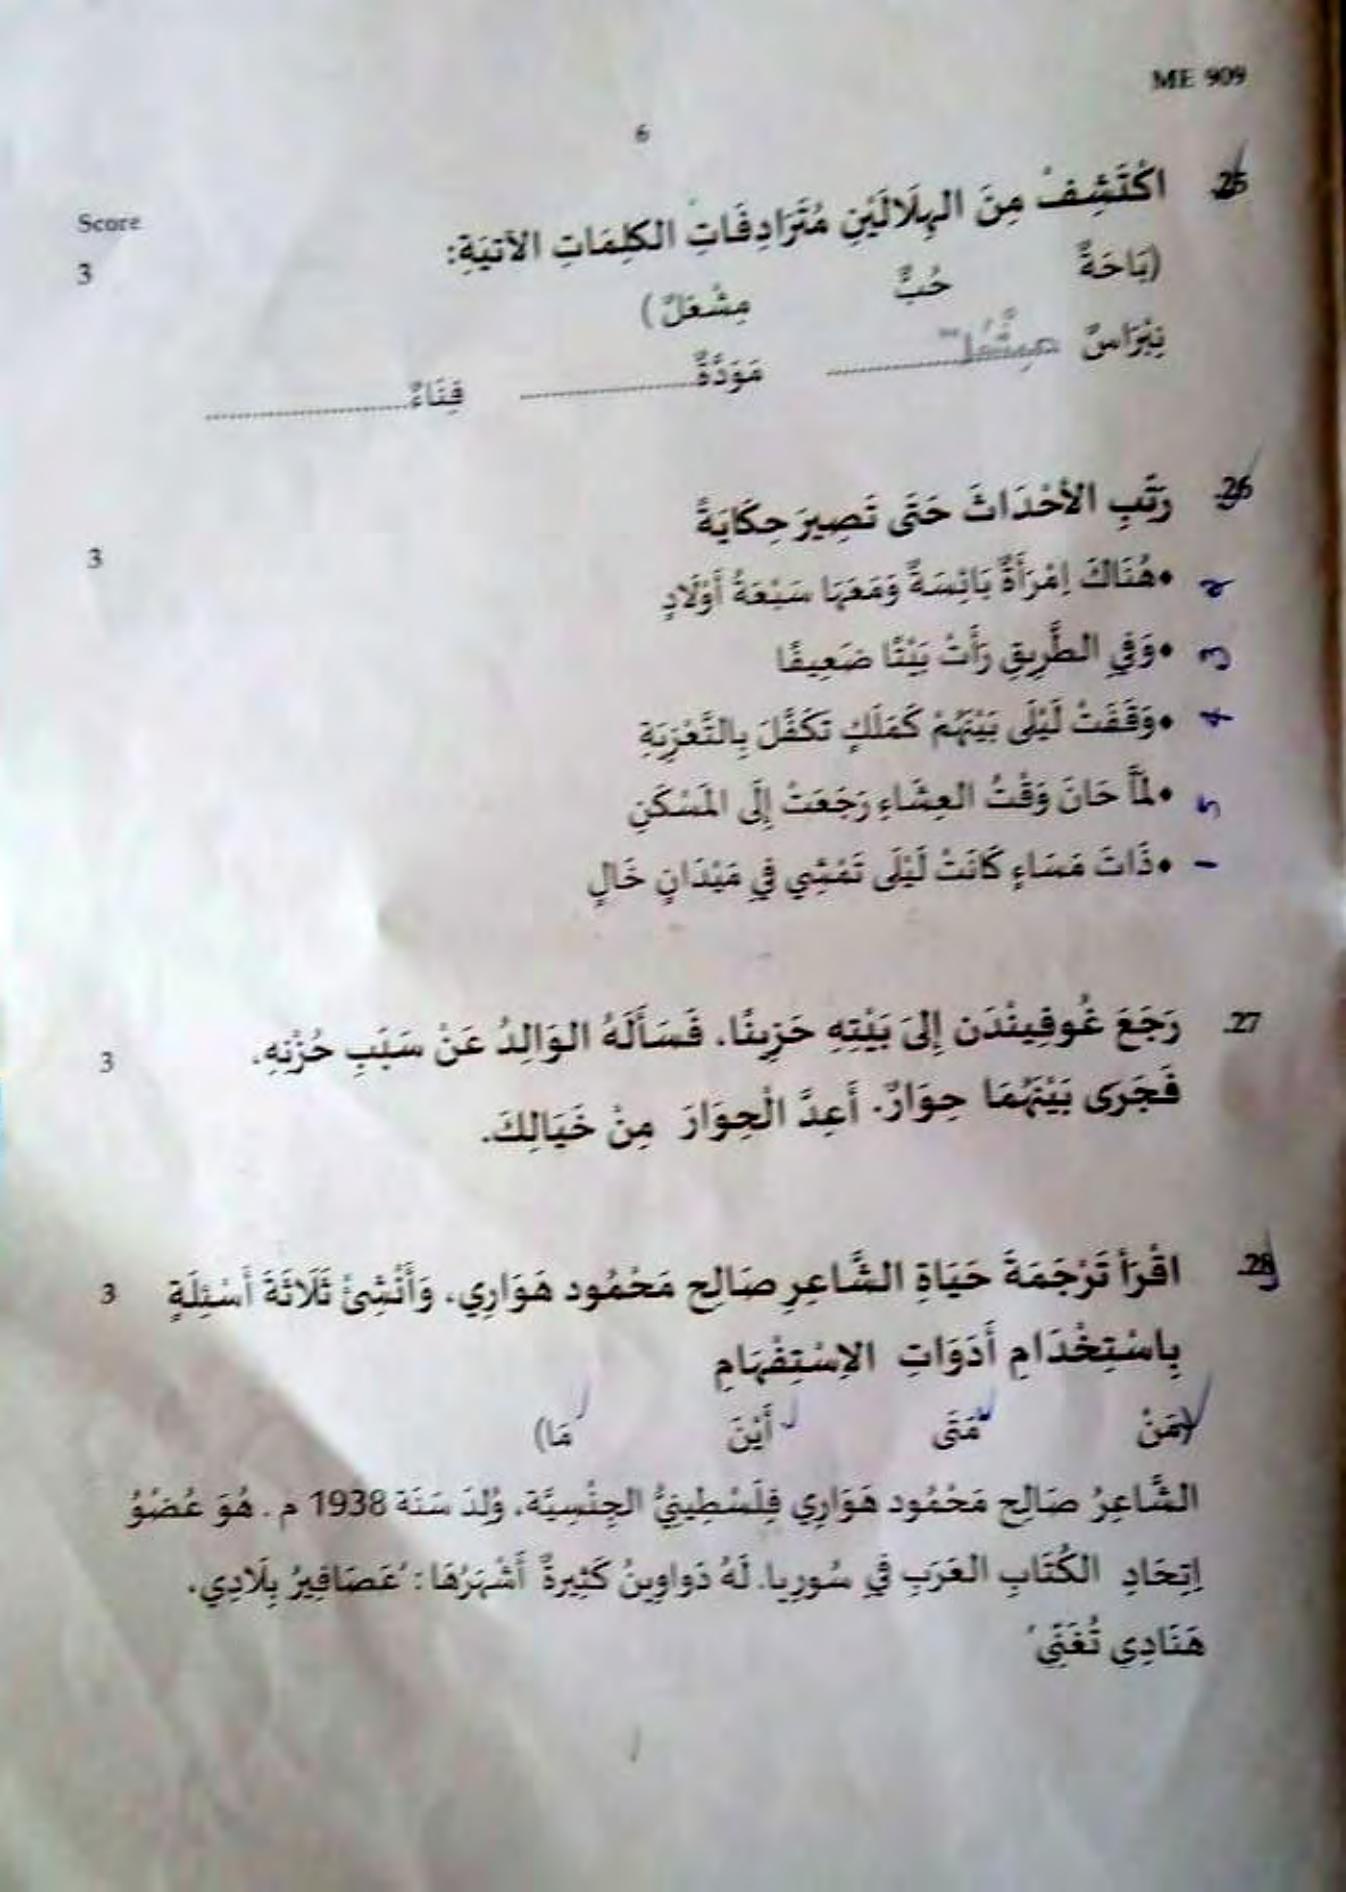 ME 909
6
Score
25. اكْتَشِفْ مِنَ الهِلَالَيْنِ مُتَرَادِفَاتِ الكَلِمَاتِ الآتيَةِ:
3
(بَاحَةٌ حُبٌّ مِشْعَلٌ)
نِبْرَاسٌ ............ مَوَدَّةٌ ............ فِنَاءٌ ............
26. رَتِّبِ الأَحْدَاثَ حَتَى تَصِيرَ حِكَايَةً
3
2 •هُنَاكَ اِمْرَأَةٌ بَائِسَةٌ وَمَعَهَا سَبْعَةُ أَوْلَادٍ
3 •وَفِي الطَّرِيقِ رَأَتْ بَيْتًا ضَعِيفًا
4 •وَقَفَتْ لَيْلَى بَيْنَهُمْ كَمَلَكٍ تَكَفَّلَ بِالتَّعْزِيَةِ
5 •لمَّا حَانَ وَقْتُ العِشَاءِ رَجَعَتْ إِلَى المَسْكَنِ
1 •ذَاتَ مَسَاءٍ كَانَتْ لَيْلَى تَمْشِي فِي مَيْدَانٍ خَالٍ
27. رَجَعَ غُوفِينْدَن إِلىَ بَيْتِهِ حَزِينًا، فَسَأَلَهُ الوَالِدُ عَنْ سَبَبِ حُزْنِهِ،
3
فَجَرَى بَيْنَهُمَا حِوَارٌ. أَعِدَّ الْحِوَارَ مِنْ خَيَالِكَ.
28. اقْرَأ تَرْجَمَةَ حَيَاةِ الشَّاعِرِ صَالِح مَحْمُود هَوَارِي، وَأَنْشِئْ ثَلَاثَةَ أَسْئِلَةٍ
3
بِاسْتِخْدَامِ أَدَوَاتِ الاِسْتِفْهَامِ
(مَنْ مَتَى أَيْنَ مَا)
الشَّاعِرُ صَالِح مَحْمُود هَوَارِي فِلَسْطِينِيُّ الجِنْسِيَّة، وُلِدَ سَنَة 1938 م . هُوَ عُضْوُ
اِتِحَادِ الكُتَابِ العَرَبِ فِي سُورِيا. لَهُ دَواوِينُ كَثِيرةٌ أَشْهَرُهَا: 'عَصَافِيرُ بِلَادِي،
هَنَادِي تُغَنِّي'